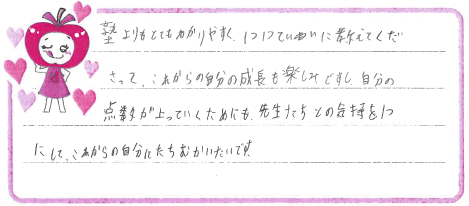 塾よりもとてもわかりやすく、1つ1つていねいに教えてくだ
さって、これからの自分の成長も楽しみですし自分の
点数が上っていくためにも、先生たちとの気持を1つ
にして、これからの自分にたちむかいたいです。